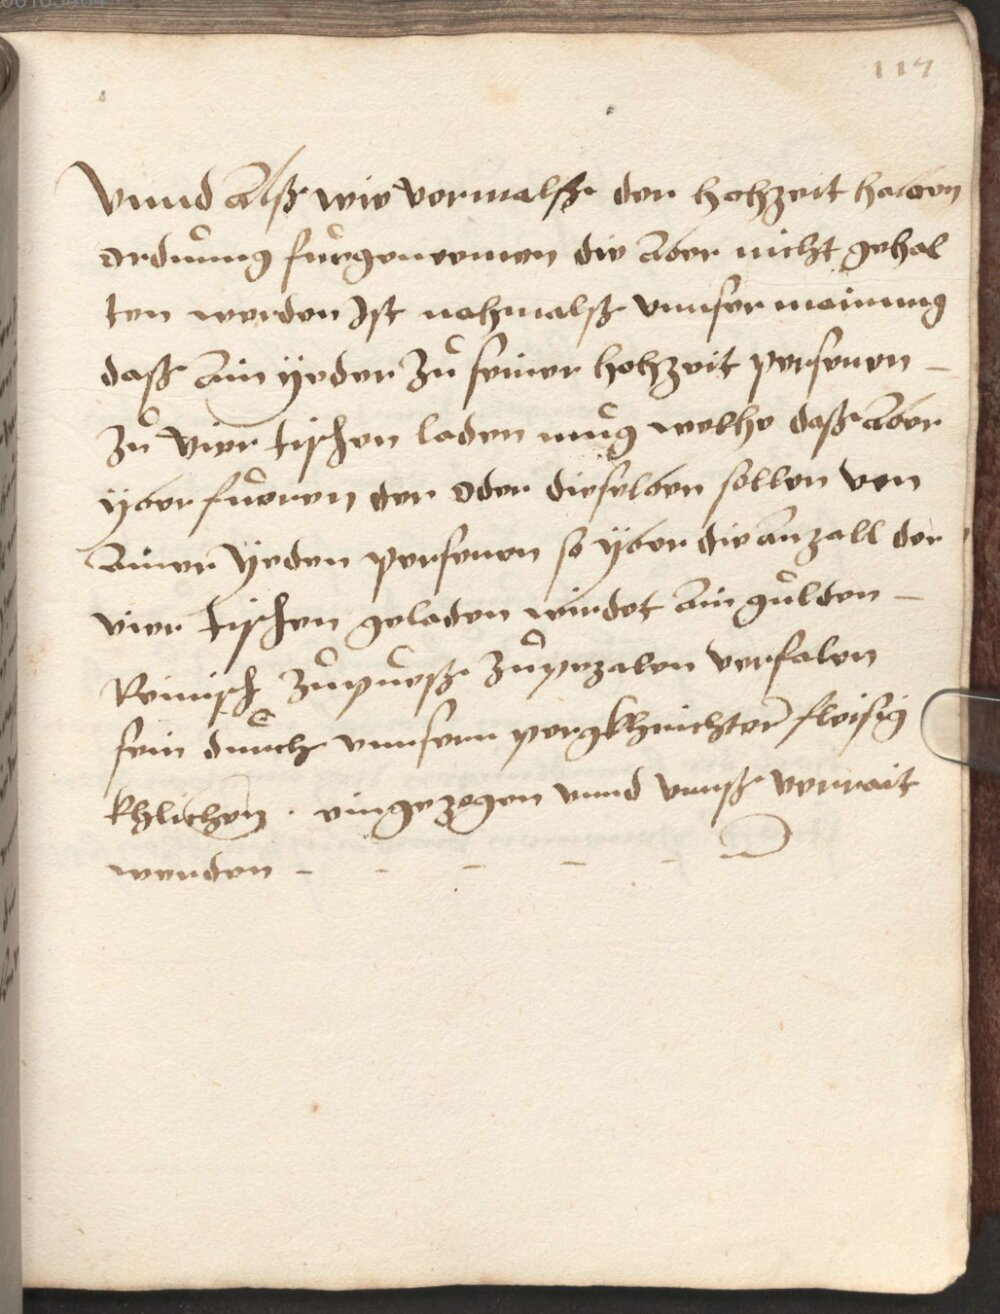 117
Vnnd Alß wir vormalß der hochzeit halben
ordnung fürgenomen die Aber nicht gehal
ten werden Ist nachmalß vnnser mainung
daß Ain yeder Zů seiner hochzeit personen –
Zů Vier tischen laden můg welhe daß Aber
yberfůeren der oder dieselben sollen von
Ainer yeden personen so yber die anzall der
vier tischen geladen wirdet Ain gůlden –
Reinisch Zůpůeß Zůpezalen verfalen
sein důrch vnnsern pergkhrichter fleisig
khlichen . eingezogen vnnd vnnß verrait
werden – – – – –